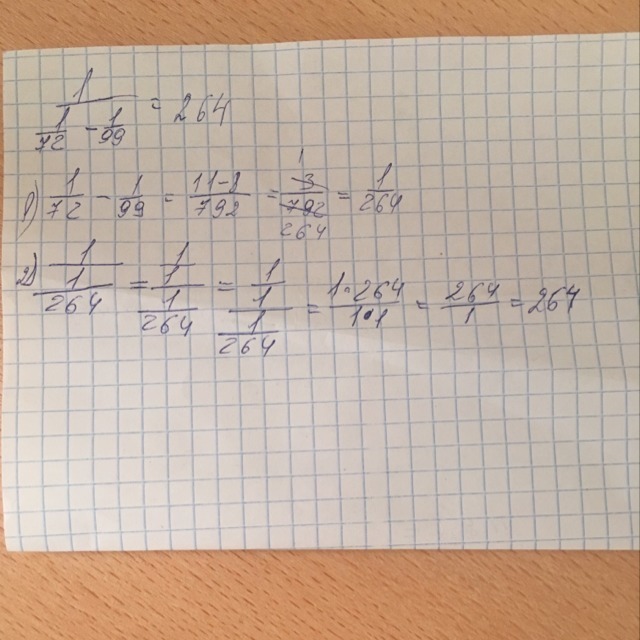 1/(1/72 - 1/99) = 264
1) 1/72 - 1/99 = (11-8)/792 = 3/792 = 1/264
1
264
2) 1/(1/264) = (1/1)/(1/264) = (1/1)/(1/264) = (1·264)/(1·1) = 264/1 = 264